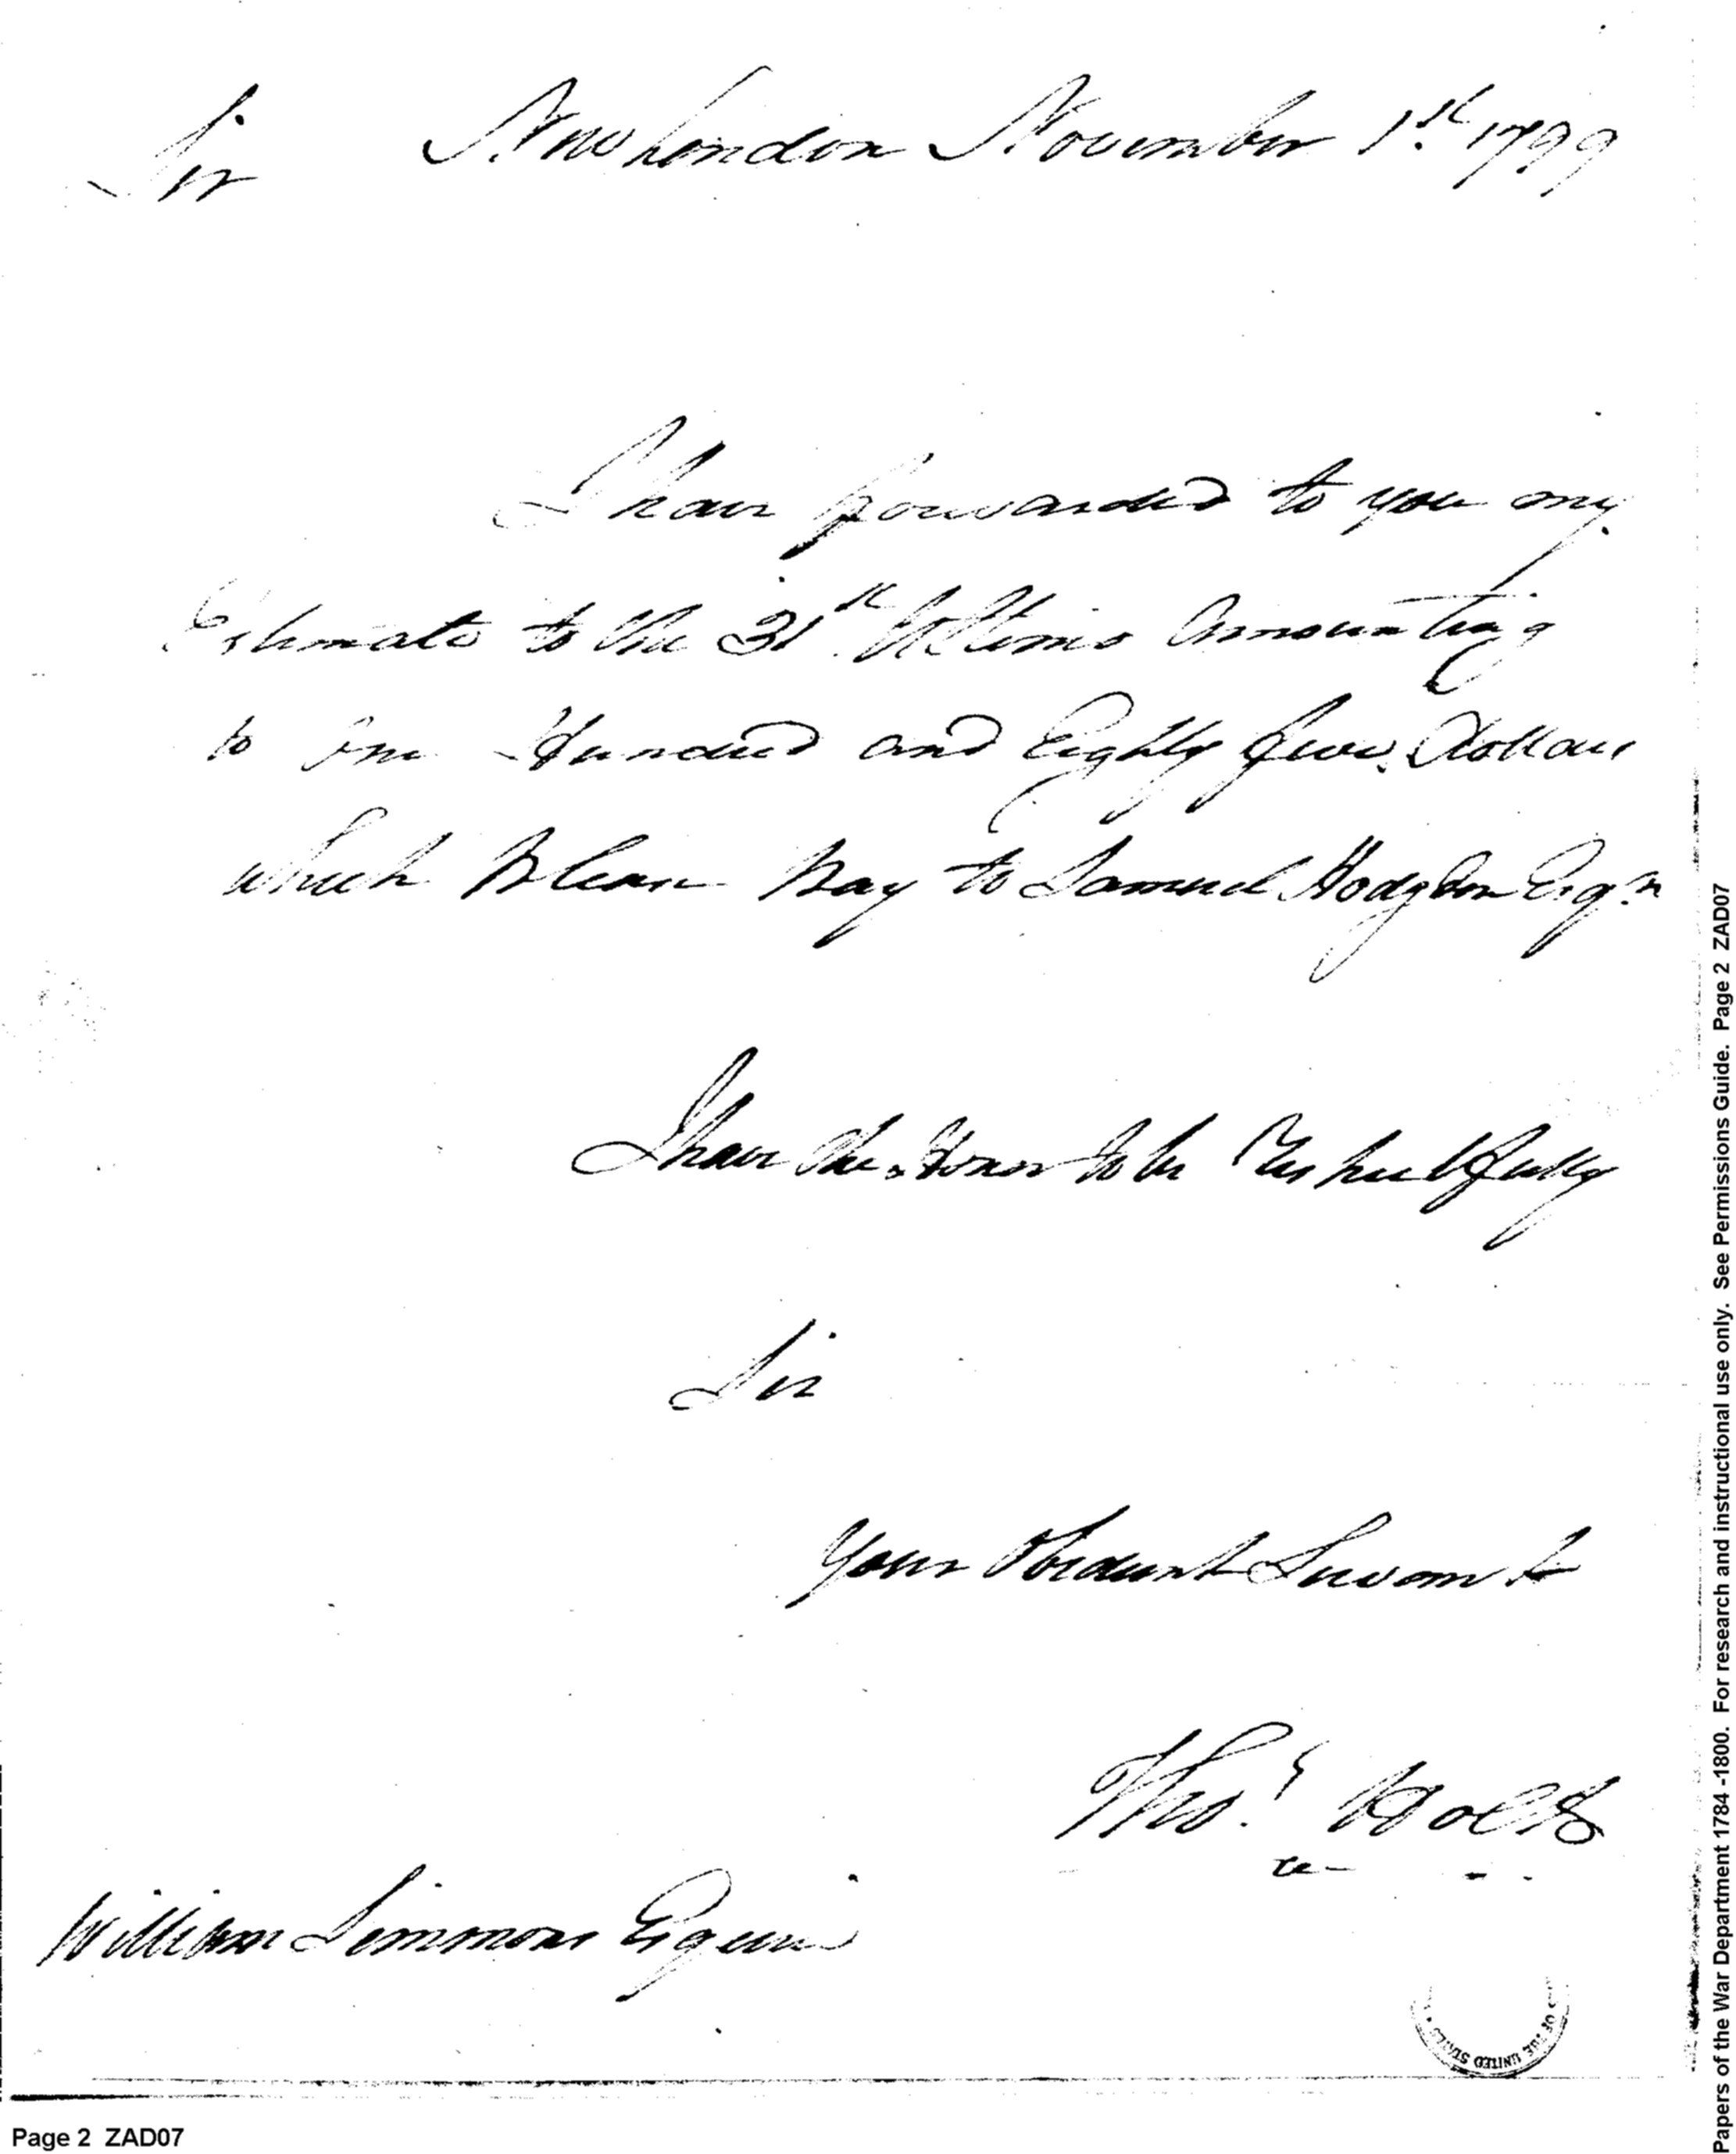 Sir New London November 1st. 1799
I have forwarded to you my
Estimate to the 31st. Ultimo Amounting
to One Hundred and Eighty five Dollars
which Please Pay to Samuel Hodgdon Esqr.
I have the Honor to be Respectfully
Sir
Your Obedient Servant
Thos. Holt
William Simmons Esquire
OF THE UNITED STATES
Page 2 ZAD07
Papers of the War Department 1784 -1800. For research and instructional use only. See Permissions Guide. Page 2 ZAD07